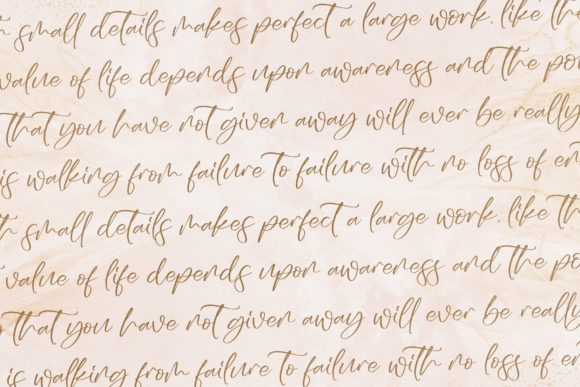 small details makes perfect a large work. like th
value of life depends upon awareness and the po
that you have not given away will ever be really
is walking from failure to failure with no loss of en
small details makes perfect a large work. like th
value of life depends upon awareness and the po
that you have not given away will ever be really
is walking from failure to failure with no loss of en